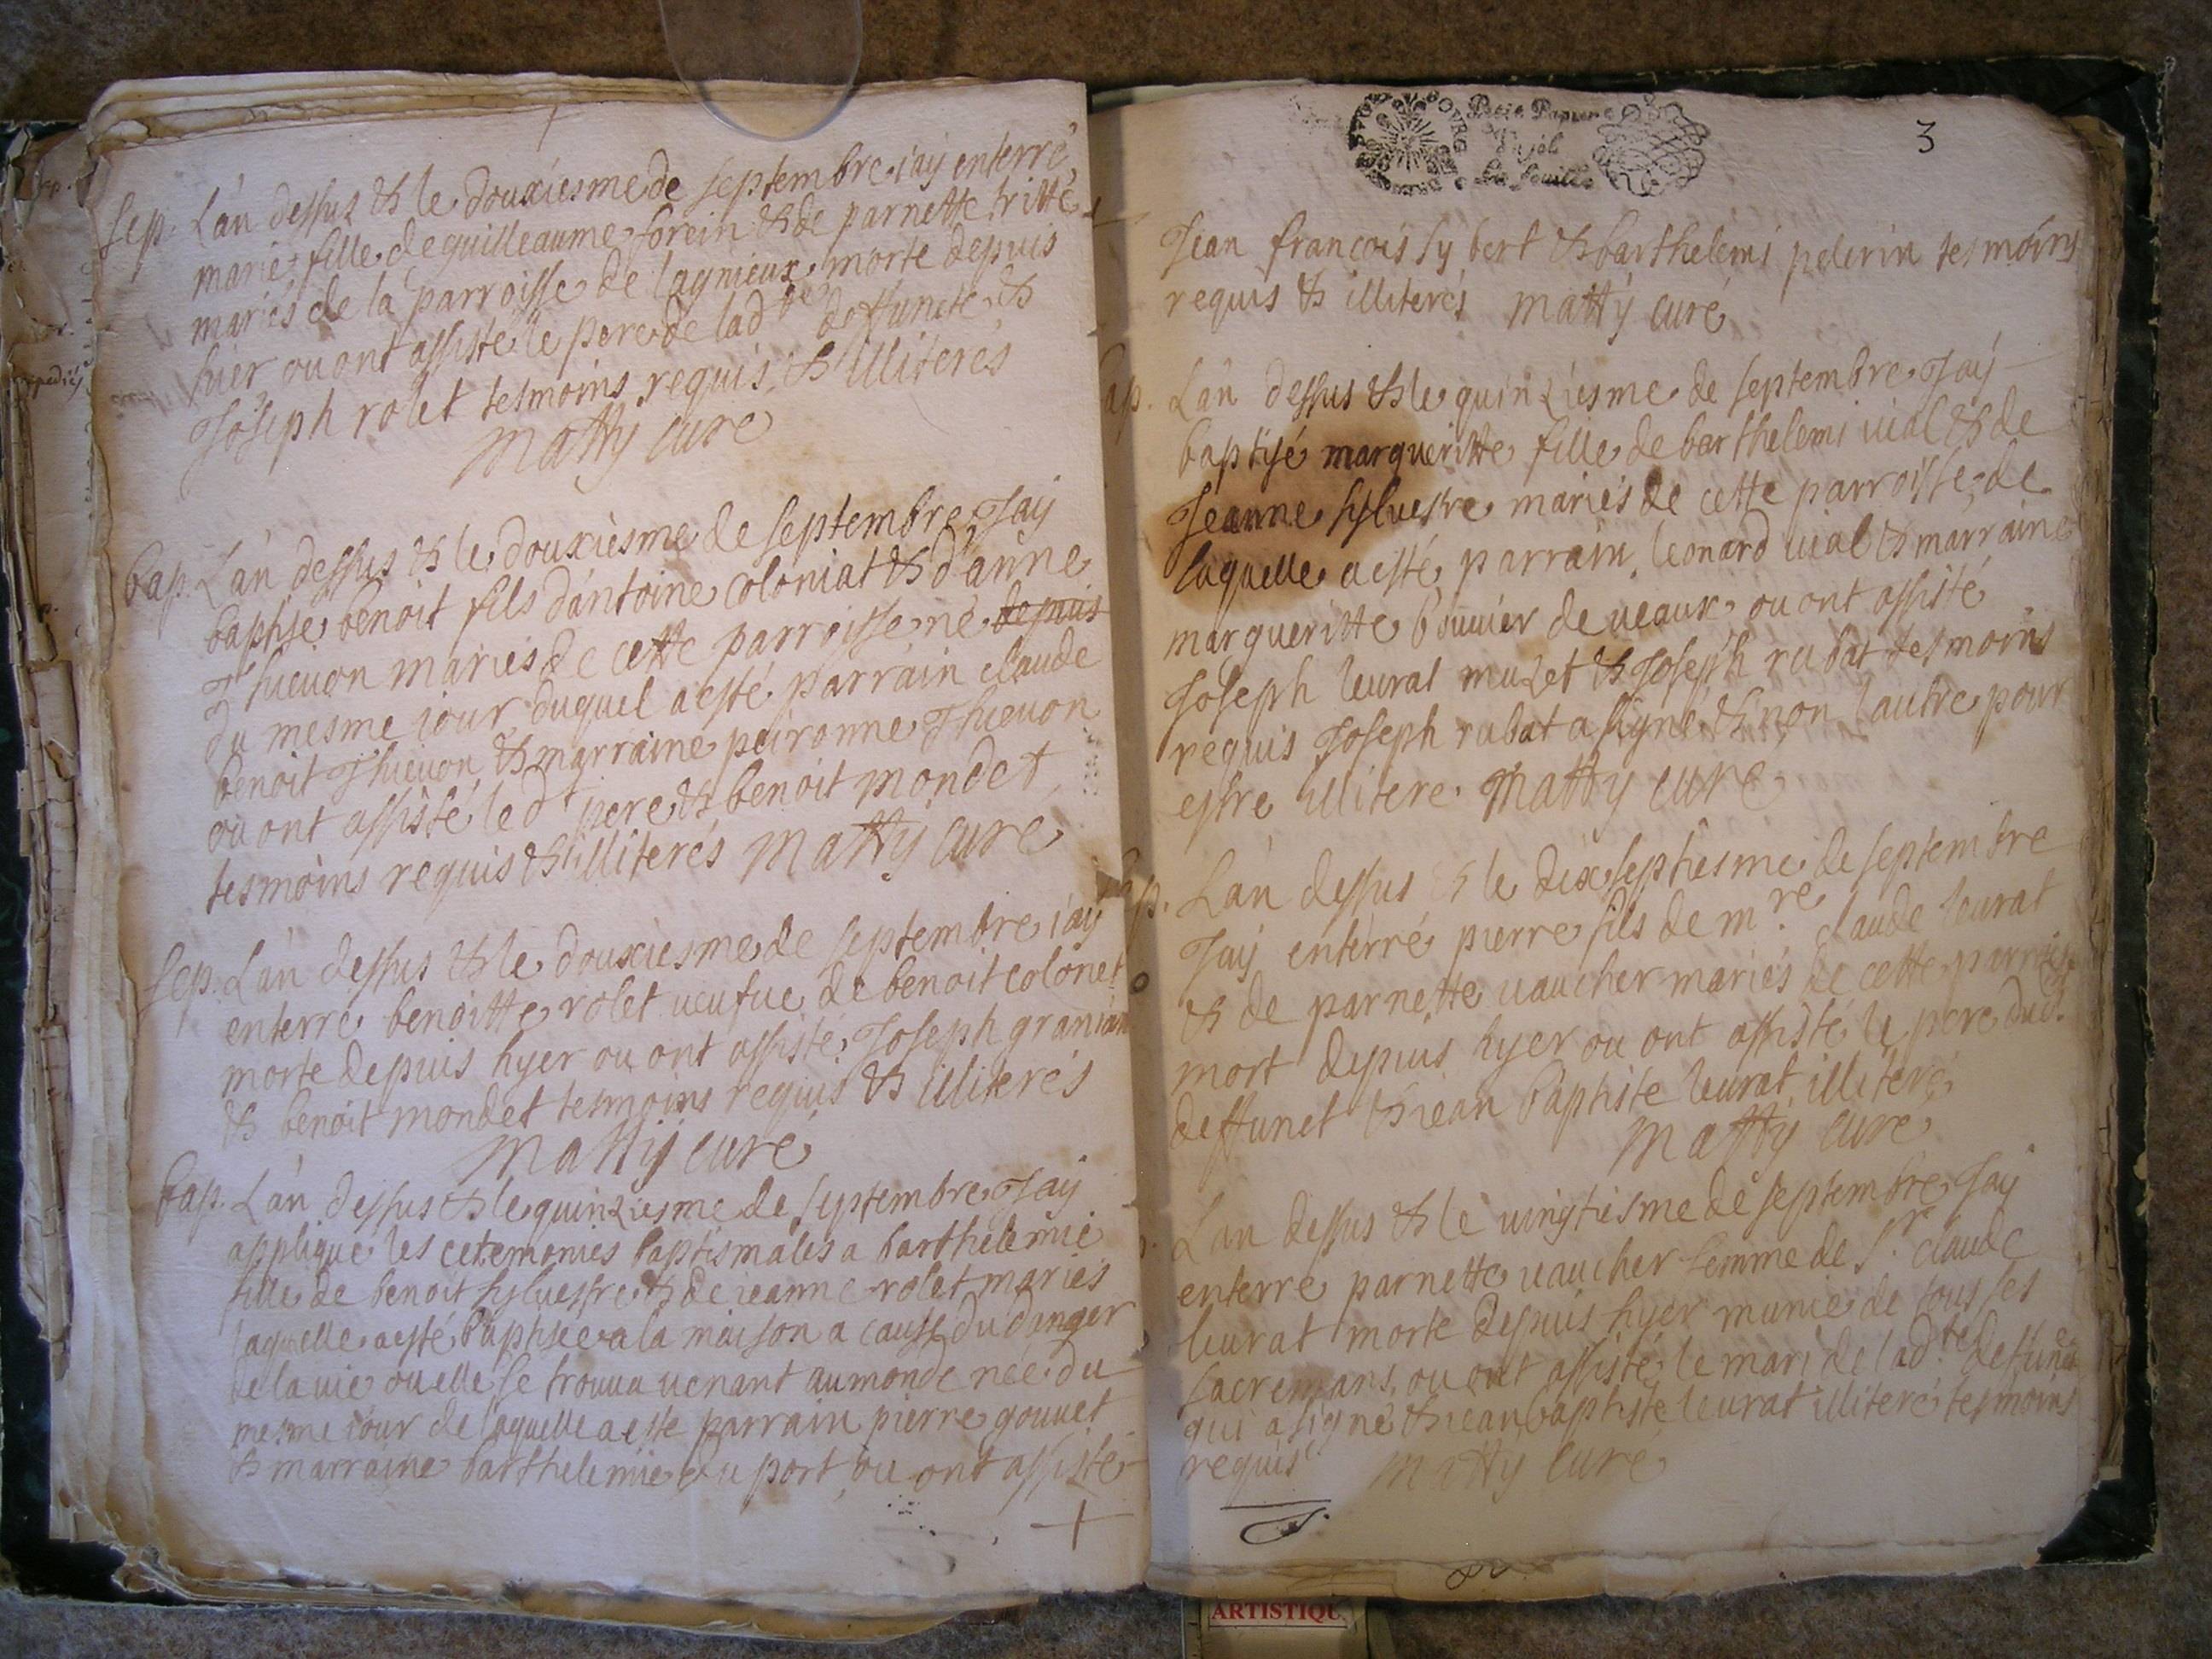 sep. L'an dessus & le douxiesme de septembre i'aÿ enterré
marie fille de guilleaume forein & de parnette tritte
mariés de la parroisse de lagnieux morte depuis
hier ou ont assisté le pere de lad.te deffuncte &
Joseph rolet tesmoins requis & illiterés
Mattÿ curé
bap. L'an dessus & le douxiesme de septembre J'aÿ
baptise benoit fils d'antoine coloniat & d'anne
Thieuon mariés de cette parroisse né depuis
du mesme iour duquel a esté parrain claude
benoit Thieuon & marraine peironne Thieuon
ou ont assisté led.t pere & benoit mondet
tesmoins requis & illiterés Mattÿ curé
sep. L'an dessus & le douxiesme de septembre i'aÿ
enterré benoitte rolet ueufue de benoit colonet
morte depuis hyer ou ont assisté Joseph
& benoit mondet tesmoins requis & illiterés
Mattÿ curé
bap. L'an dessus & le quinziesme de septembre J'aÿ
appliqué les ceremonies baptismales a barthelemie
fille de benoit syluestre & de ieanne rolet mariés
laquelle a esté baptisée a la maison a cause du danger
de la uie ou elle se trouua uenant au monde née du
mesme iour de laquelle a esté parrain pierre gouuet
& marraine barthelemie du port ou ont assisté
3
Petit Papier
la feuille
Jean françois sybert & barthelemi pelerin tesmoins
requis & illiterés Mattÿ curé
bap. L'an dessus & le quinziesme de septembre J'aÿ
baptisé margueritte fille de barthelemi uial & de
Jeanne syluestre mariés de cette parroisse de
laquelle a esté parrain leonard uial & marraine
margueritte bouuier de ueaux ou ont assisté
Joseph leurat muzet & Joseph rubat tesmoins
requis Joseph rubat a signé & non l'autre pour
estre illiteré Mattÿ curé
L'an dessus & le dixseptiesme de septembre
J'aÿ enterré pierre fils de m.re claude leurat
& de parnette uaucher mariés de cette parroisse
mort depuis hyer ou ont assisté le pere dud.
deffunct & iean baptiste leurat illiteré
Mattÿ curé
L'an dessus & le uingtiesme de septembre J'aÿ
enterré parnette uaucher femme de S.r claude
leurat morte depuis hyer munie de tous ses
sacremans ou ont assisté le mari de lad.te deffuncte
qui a signé & iean baptiste leurat illiteré tesmoins
requis Mattÿ curé
ARTISTIQU